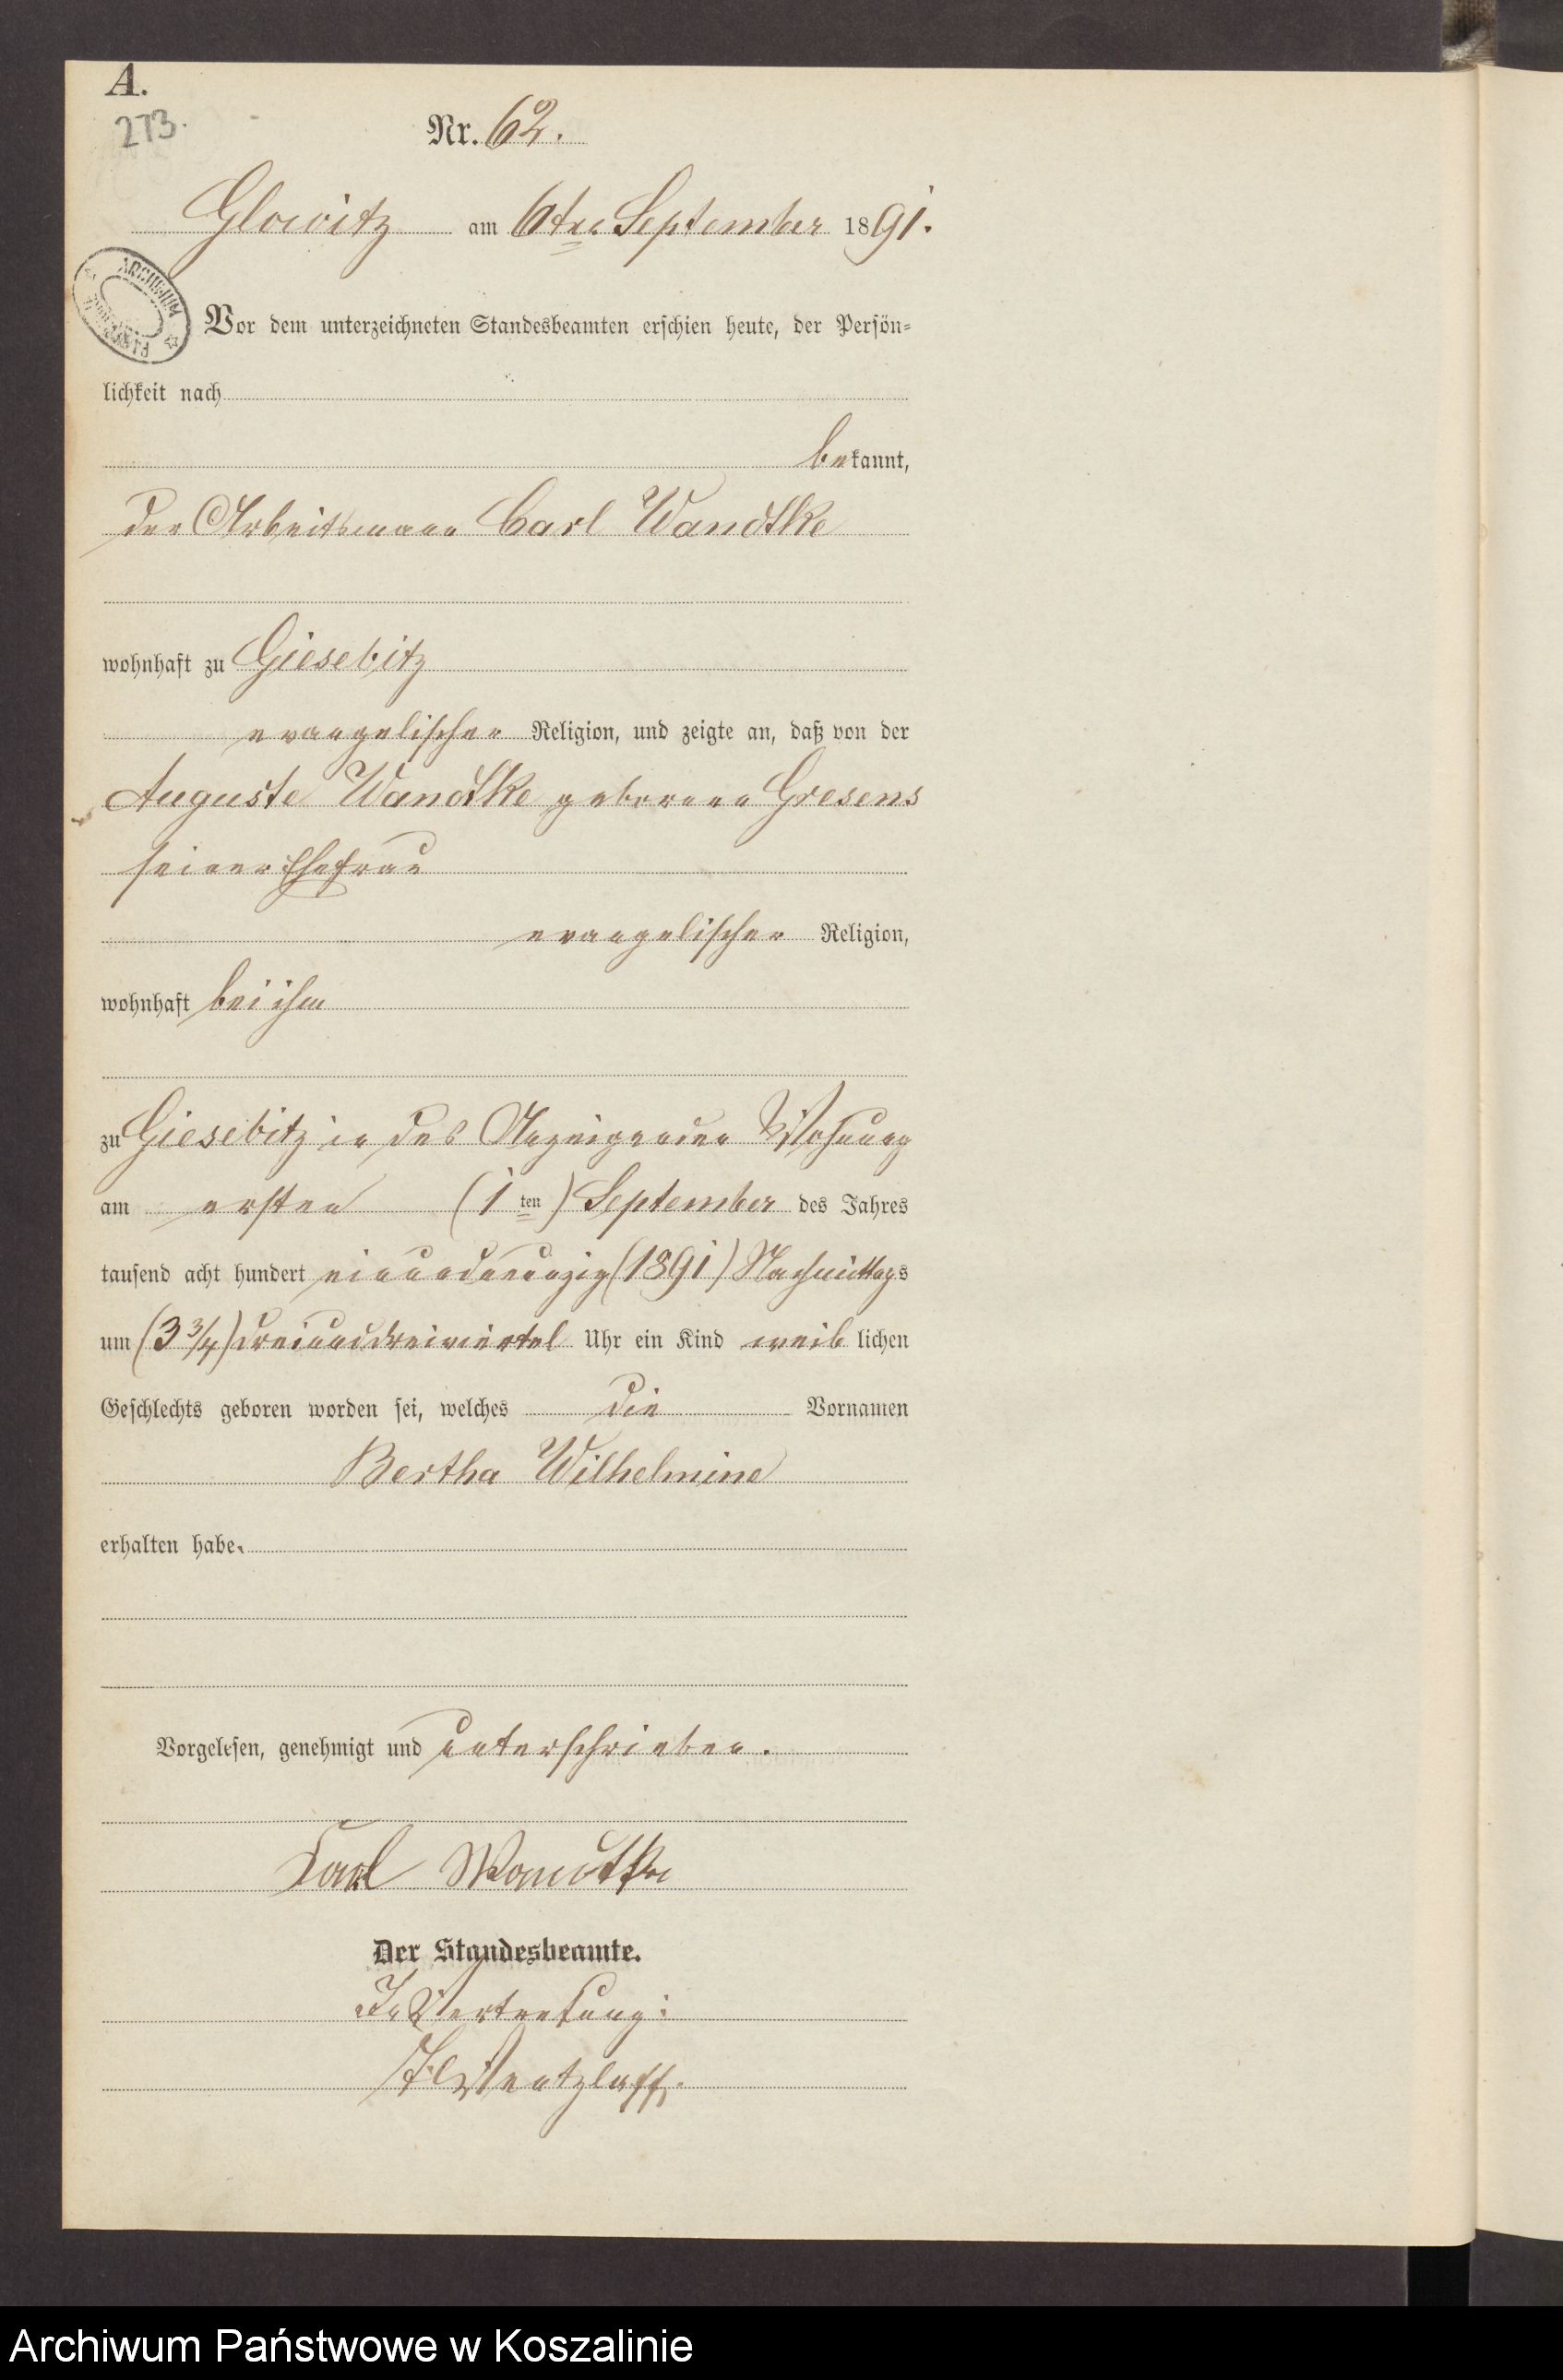 A.
273.
Nr. 62.
Glowitz am 6ten September 1891.
ARCHIWUM
Vor dem unterzeichneten Standesbeamten erschien heute, der Persön=
lichkeit nach
bekannt,
der Arbeitsmann Carl Wandtke
wohnhaft zu Giesebitz
evangelischer Religion, und zeigte an, daß von der
Auguste Wandtke geborene Gresens
seiner Ehefrau
evangelischer Religion,
wohnhaft bei ihm
zu Giesebitz in des Anzeigenden Wohnung
am ersten (1 ten) September des Jahres
tausend acht hundert einundneunzig (1891) Nachmittags
um (3 3/4) dreiunddreiviertel Uhr ein Kind weib lichen
Geschlechts geboren worden sei, welches die Vornamen
Bertha Wilhelmine
erhalten habe.
Vorgelesen, genehmigt und unterschrieben.
Carl Wandtke
Der Standesbeamte.
In Vertretung:
Wentzlaff.
Archiwum Państwowe w Koszalinie